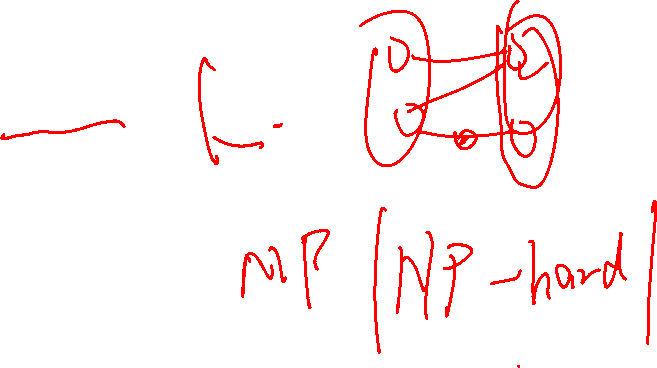 NP | NP-hard |